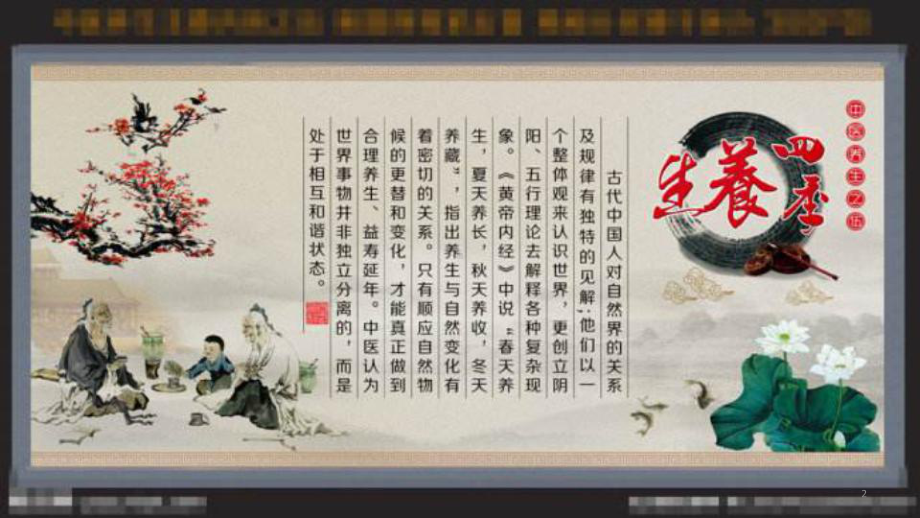 中医养生之伍
四季
养生
古代中国人对自然界的关系
及规律有独特的见解;他们以一
个整体观来认识世界，更创立阴
阳、五行理论去解释各种复杂现
象。《黄帝内经》中说“春天养
生，夏天养长，秋天养收，冬天
养藏”，指出养生与自然变化有
着密切的关系。只有顺应自然物
候的更替和变化，才能真正做到
合理养生、益寿延年。中医认为
世界事物并非独立分离的，而是
处于相互和谐状态。
2